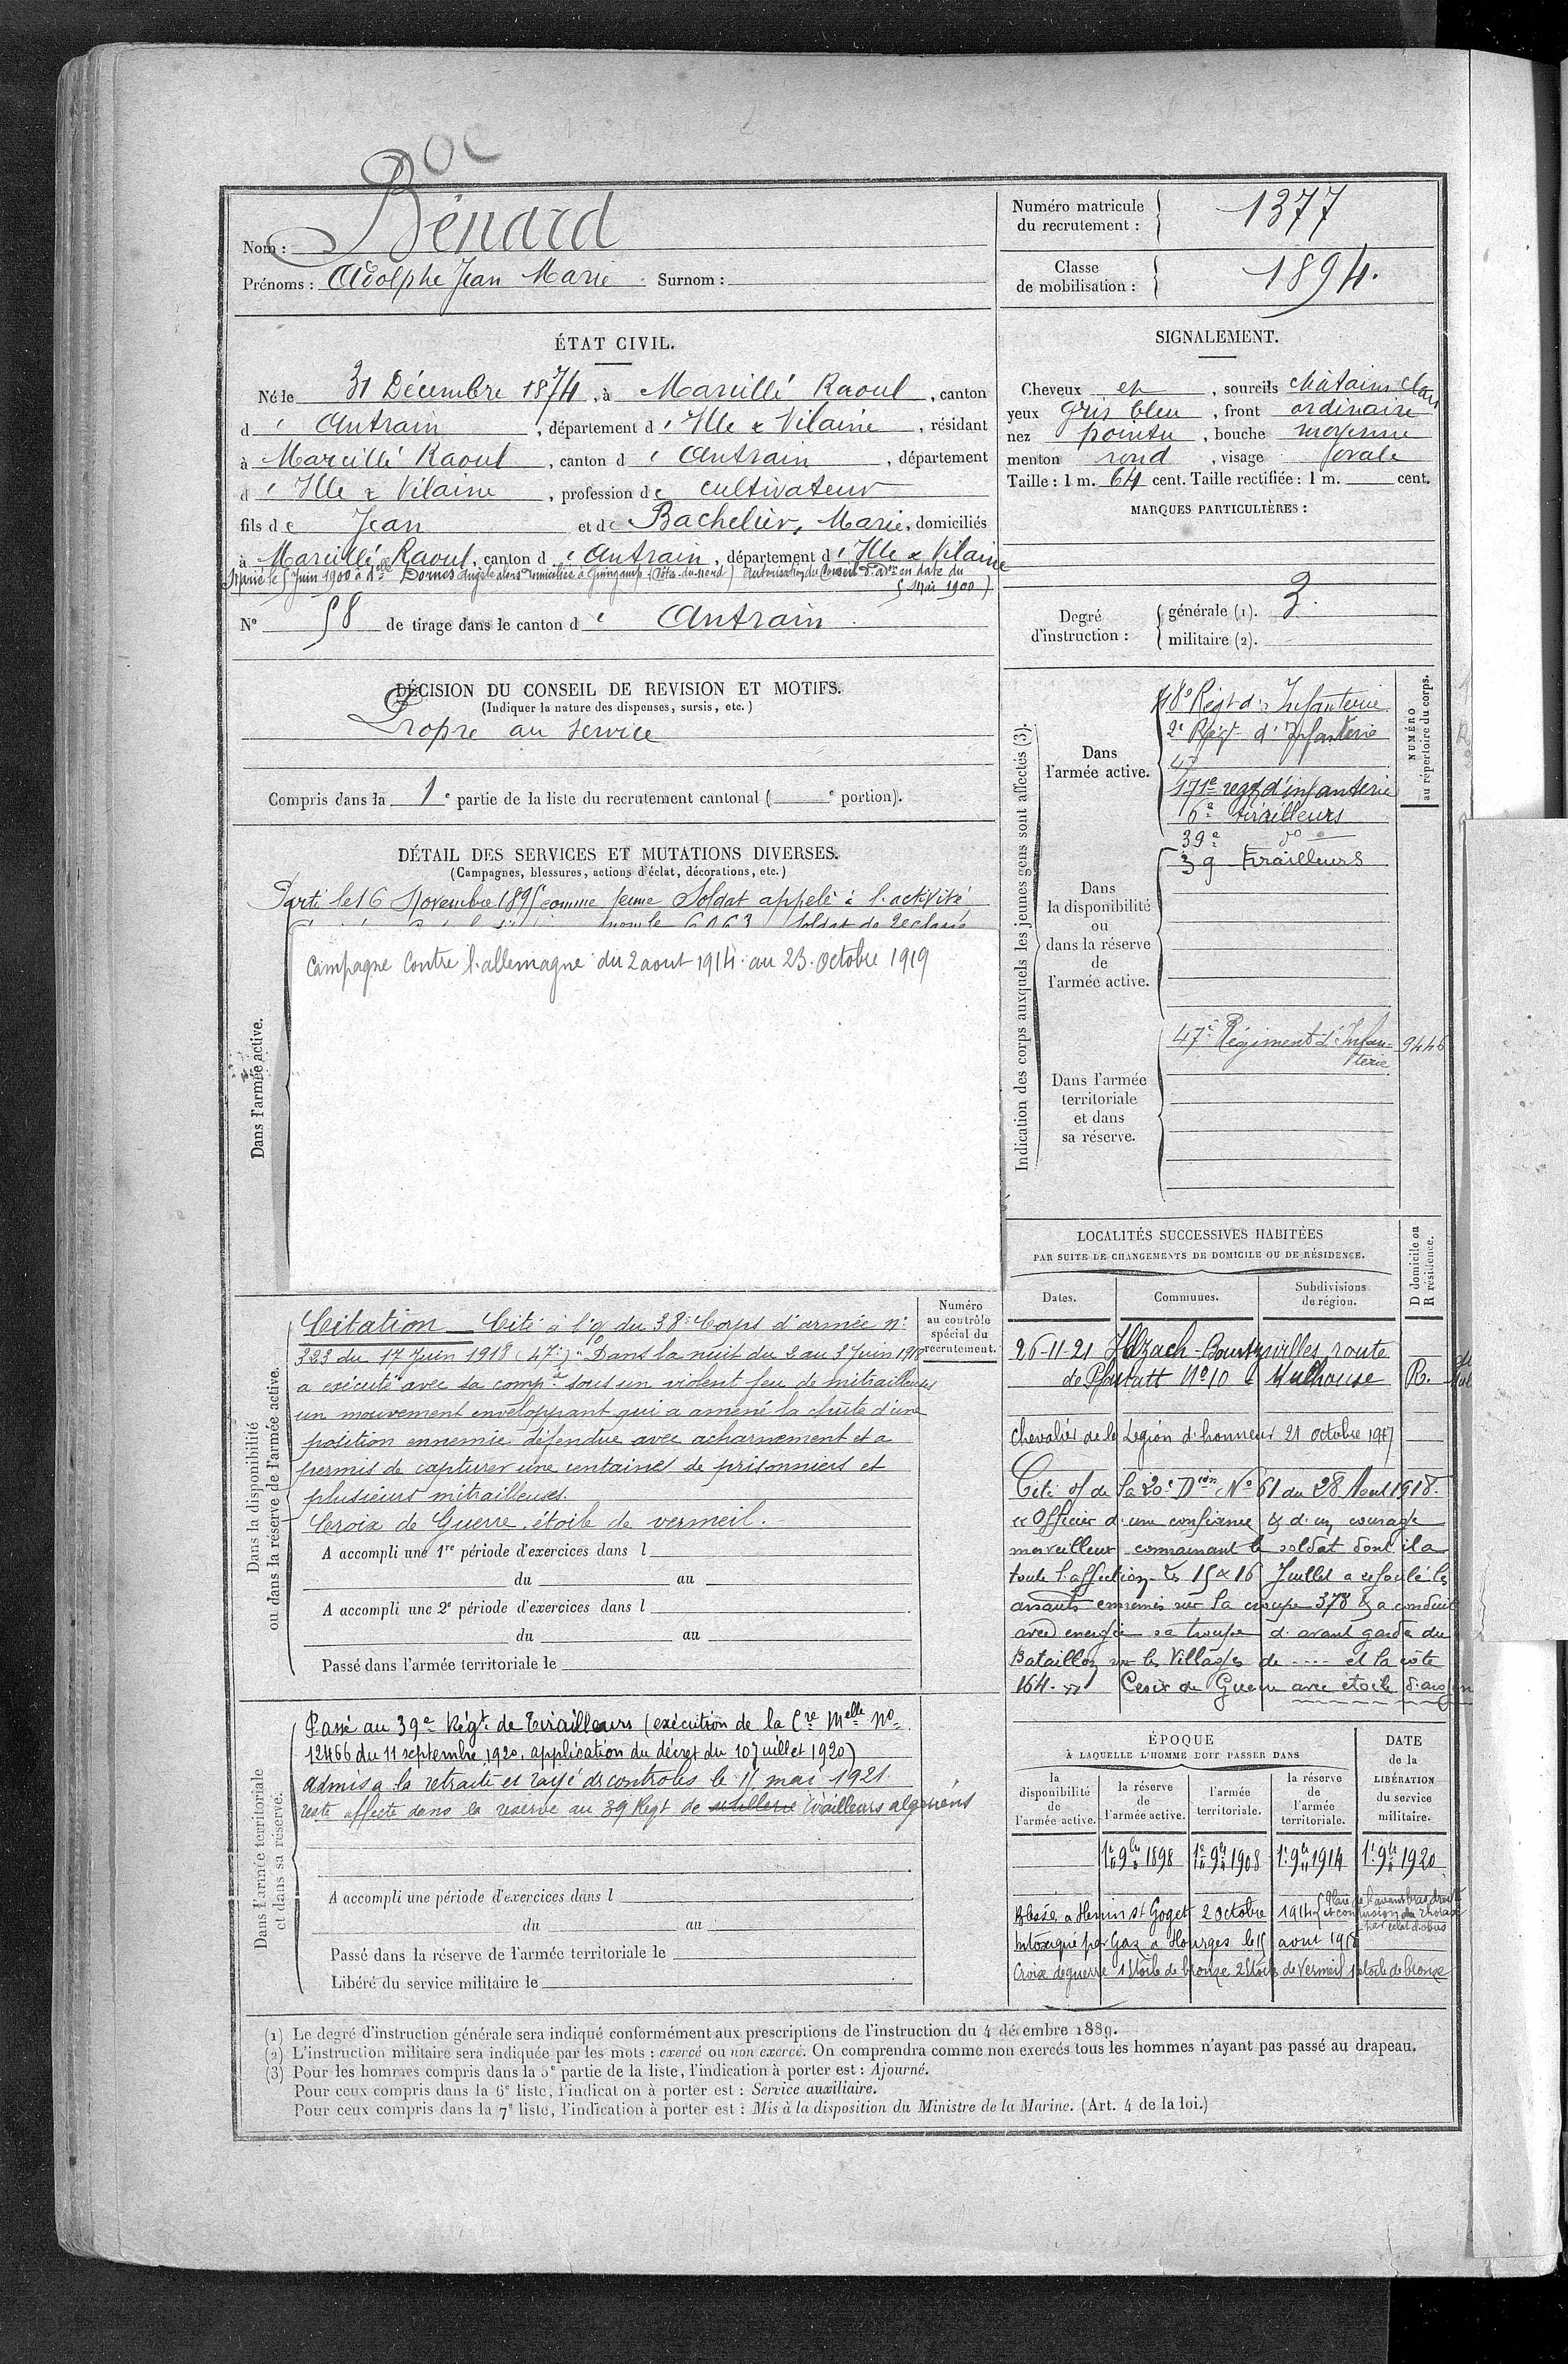 Nom : Bénard
Prénoms : Adolphe Jean Marie Surnom :
Numéro matricule
du recrutement : 1377
Classe
de mobilisation : 1894.
ÉTAT CIVIL.
Né le 31 Décembre 1874, à Marcillé Raoul, canton
d' Antrain, département d' Ille & Vilaine, résidant
à Marcillé Raoul, canton d' Antrain, département
d' Ille & Vilaine, profession de cultivateur
fils de Jean et de Bachelier, Marie, domiciliés
à Marcillé Raoul, canton d' Antrain, département d' Ille & Vilaine
Marié le 5 Juin 1900 à Delle Dornes Angèle alors domiciliée à Guingamp (Côtes-du-Nord) Autorisation du Conseil d'aon en date du
5 Mai 1900)
No 58 de tirage dans le canton d' Antrain
SIGNALEMENT.
Cheveux et, sourcils châtains clair
yeux gris bleu, front ordinaire
nez pointu, bouche moyenne
menton rond, visage ovale
Taille : 1 m. 64 cent. Taille rectifiée : 1 m. cent.
MARQUES PARTICULIÈRES :
Degré
d'instruction :
générale (1). 3.
militaire (2).
DÉCISION DU CONSEIL DE REVISION ET MOTIFS.
(Indiquer la nature des dispenses, sursis, etc.)
Propre au service
Compris dans la 1e partie de la liste du recrutement cantonal ( e portion).
DÉTAIL DES SERVICES ET MUTATIONS DIVERSES.
(Campagnes, blessures, actions d'éclat, décorations, etc.)
Dans l'armée active.
Parti le 16 Novembre 1895 comme jeune Soldat appelé à l'activité
Soldat de 2e classe
Campagne contre l'allemagne du 2 aout 1914 au 23 octobre 1919
Indication des corps auxquels les jeunes gens sont affectés (3).
NUMÉRO
au répertoire du corps.
Dans
l'armée active.
48e Régt d'Infanterie
2e Régt d'Infanterie
47
171e regt d'infanterie
6e tirailleurs
39e do
Dans
la disponibilité
ou
dans la réserve
de
l'armée active.
39 tirailleurs
Dans l'armée
territoriale
et dans
sa réserve.
47e Régiment d'Infan-
terie
9446
LOCALITÉS SUCCESSIVES HABITÉES
PAR SUITE DE CHANGEMENTS DE DOMICILE OU DE RÉSIDENCE.
Dates.
Communes.
Subdivisions
de région.
D domicile ou
R résidence.
26-11-21 Illzach-Bourtzwilles route
de Pfastatt No 10 Mulhouse R.
Chevalier de la Légion d'honneur 21 octobre 1917
Cité of de la 20e Don No 61 du 28 Aout 1918.
"Officier d'une confiance & d'un courage
merveilleux connaissant le soldat dont il a
toute l'affection. Les 15 & 16 Juillet a refoulé les
assauts ennemis sur la croupe 378 & a conduit
avec energie sa troupe d'avant garde du
Bataillon sur les Villages de .... et la côte
164." Croix de Guerre avec étoile d'argent
Dans la disponibilité
ou dans la réserve de l'armée active.
Numéro
au contrôle
spécial du
recrutement.
Citation Cité à l'o/ du 38e Corps d'armée no
323 du 17 Juin 1918 (47e) "Dans la nuit du 2 au 3 Juin 1918
a exécuté avec sa compie sous un violent feu de mitrailleuses
un mouvement enveloppant qui a amené la chûte d'une
position ennemie défendue avec acharnement et a
permis de capturer une centaines de prisonniers et
plusieurs mitrailleuses.
Croix de Guerre. étoile de vermeil.
A accompli une 1re période d'exercices dans l
du au
A accompli une 2e période d'exercices dans l
du au
Passé dans l'armée territoriale le
Dans l'armée territoriale
et dans sa réserve.
Passé au 39e Régt de Tirailleurs (exécution de la Cre Melle No
12466 du 11 septembre 1920, application du décret du 10 juillet 1920)
admis a la retraite et rayé des controles le 11 mai 1921
reste affecté dans la reserve au 39 Regt de tirailleurs algeriens
A accompli une période d'exercices dans l
du au
Passé dans la réserve de l'armée territoriale le
Libéré du service militaire le
ÉPOQUE
À LAQUELLE L'HOMME DOIT PASSER DANS
DATE
de la
LIBÉRATION
du service
militaire.
la
disponibilité
de
l'armée active.
la réserve
de
l'armée active.
l'armée
territoriale.
la réserve
de
l'armée
territoriale.
1er 9bre 1898 1er 9bre 1908 1er 9bre 1914 1er 9bre 1920
Blessé a Henin st Goget 2 octobre 1914 (Plaie de l'avant bras droit
et contusion du thorax
par eclat d'obus
Intoxiqué par Gaz a Hourges le 15 aout 1918
Croix de guerre 1 étoile de bronze 2 étoile de Vermeil 1 étoile de bronze
(1) Le degré d'instruction générale sera indiqué conformément aux prescriptions de l'instruction du 4 décembre 1889.
(2) L'instruction militaire sera indiquée par les mots : exercé ou non exercé. On comprendra comme non exercés tous les hommes n'ayant pas passé au drapeau.
(3) Pour les hommes compris dans la 5e partie de la liste, l'indication à porter est : Ajourné.
Pour ceux compris dans la 6e liste, l'indication à porter est : Service auxiliaire.
Pour ceux compris dans la 7e liste, l'indication à porter est : Mis à la disposition du Ministre de la Marine. (Art. 4 de la loi.)